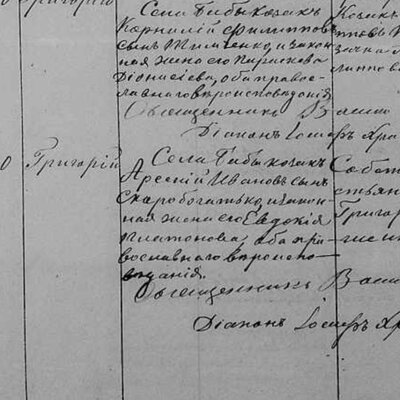 Григорій
Села Бабы козакъ
Корнилій Филипповъ
сынъ Тимченко и закон-
ная жена его Параскева
Діонисіева, оба право-
славнаго вѣроисповѣданія
Священникъ Васи
Діаконъ Іосифъ Кра
Козакъ
0 Григорій
Села Бабы козакъ
Арсеній Ивановъ сынъ
Скоробогатько и закон-
ная жена его Евдокія
Платонова, оба пра-
вославнаго вѣроиспо-
вѣданія
Священникъ Васи
Діаконъ Іосифъ Кр
Григор